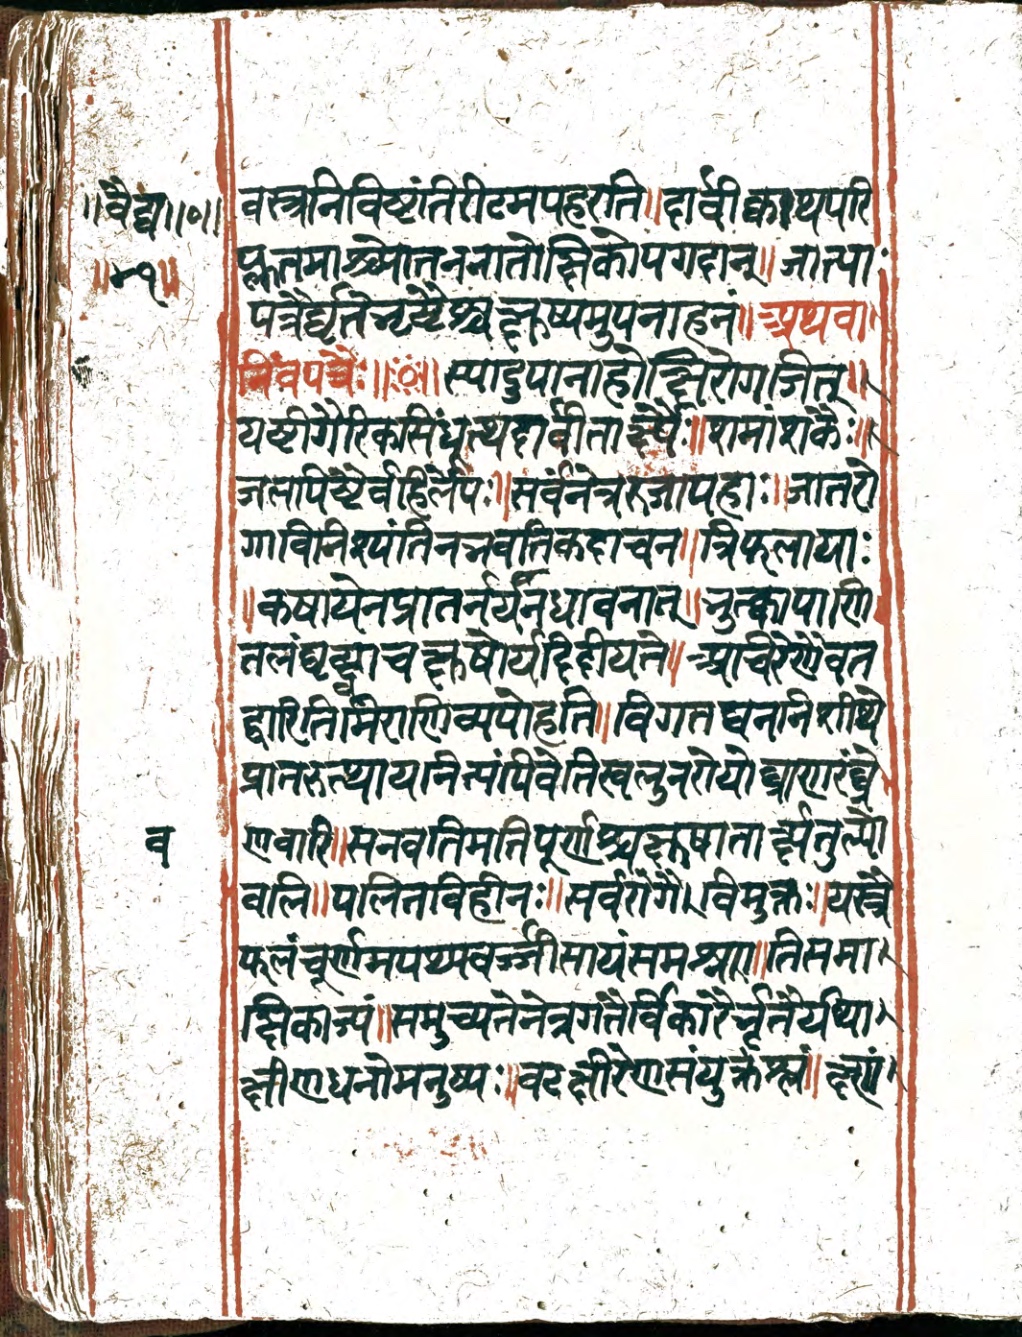 ॥वैद्य॥०॥
॥४१॥
वस्त्रनिविष्टांतिरीटमपहरति॥दार्वीक्वाथपरि
प्लुतमाश्चोतनजातोक्षिकोपगदान्॥जात्पाः
पत्रैर्घृतेनृष्टैश्चक्षुष्यमुपनाहनं॥अथवा
निंवपत्रैः॥छ॥स्यादुपानाहोक्षिरोगजित्॥
यष्टीगैरिकसिंधूत्थदार्वीतार्क्ष्यैः॥शमांशकैः॥
जलपिष्टैर्वहिर्लेपः॥सर्वनेत्ररुजापहाः॥जातरो
गाविनिश्यंतिननवंतिकदाचन॥त्रिफलायाः
॥कषायेनप्रातर्नयनधावनात्॥नुत्कापाणि
तलंघृष्ट्वाचक्षुषोर्यदिदीयते॥अचिरेणैवत
द्वारितिमिराणिव्यपोहति॥विगतघननिशीथे
प्रातरुत्थायनित्यंपिवेतिखलुनरोयोघ्राणरंध्रे
व
णवारि॥सनवतिमतिपूर्णश्चक्षुषातार्क्ष्यतुल्पो
वलि॥पलितविहीनः॥सर्वरोगैविमुक्तः॥यस्त्रै
फलंचूर्णमपथ्यवर्ज्जीसायंसमश्नाति॥समा
क्षिकाज्यं॥समुच्यतेनेत्रगतैर्विकारैर्नृतैर्यथा
क्षीणधनोमनुष्यः॥वटक्षीरेणसंयुक्तंश्लं॥क्ष्णं